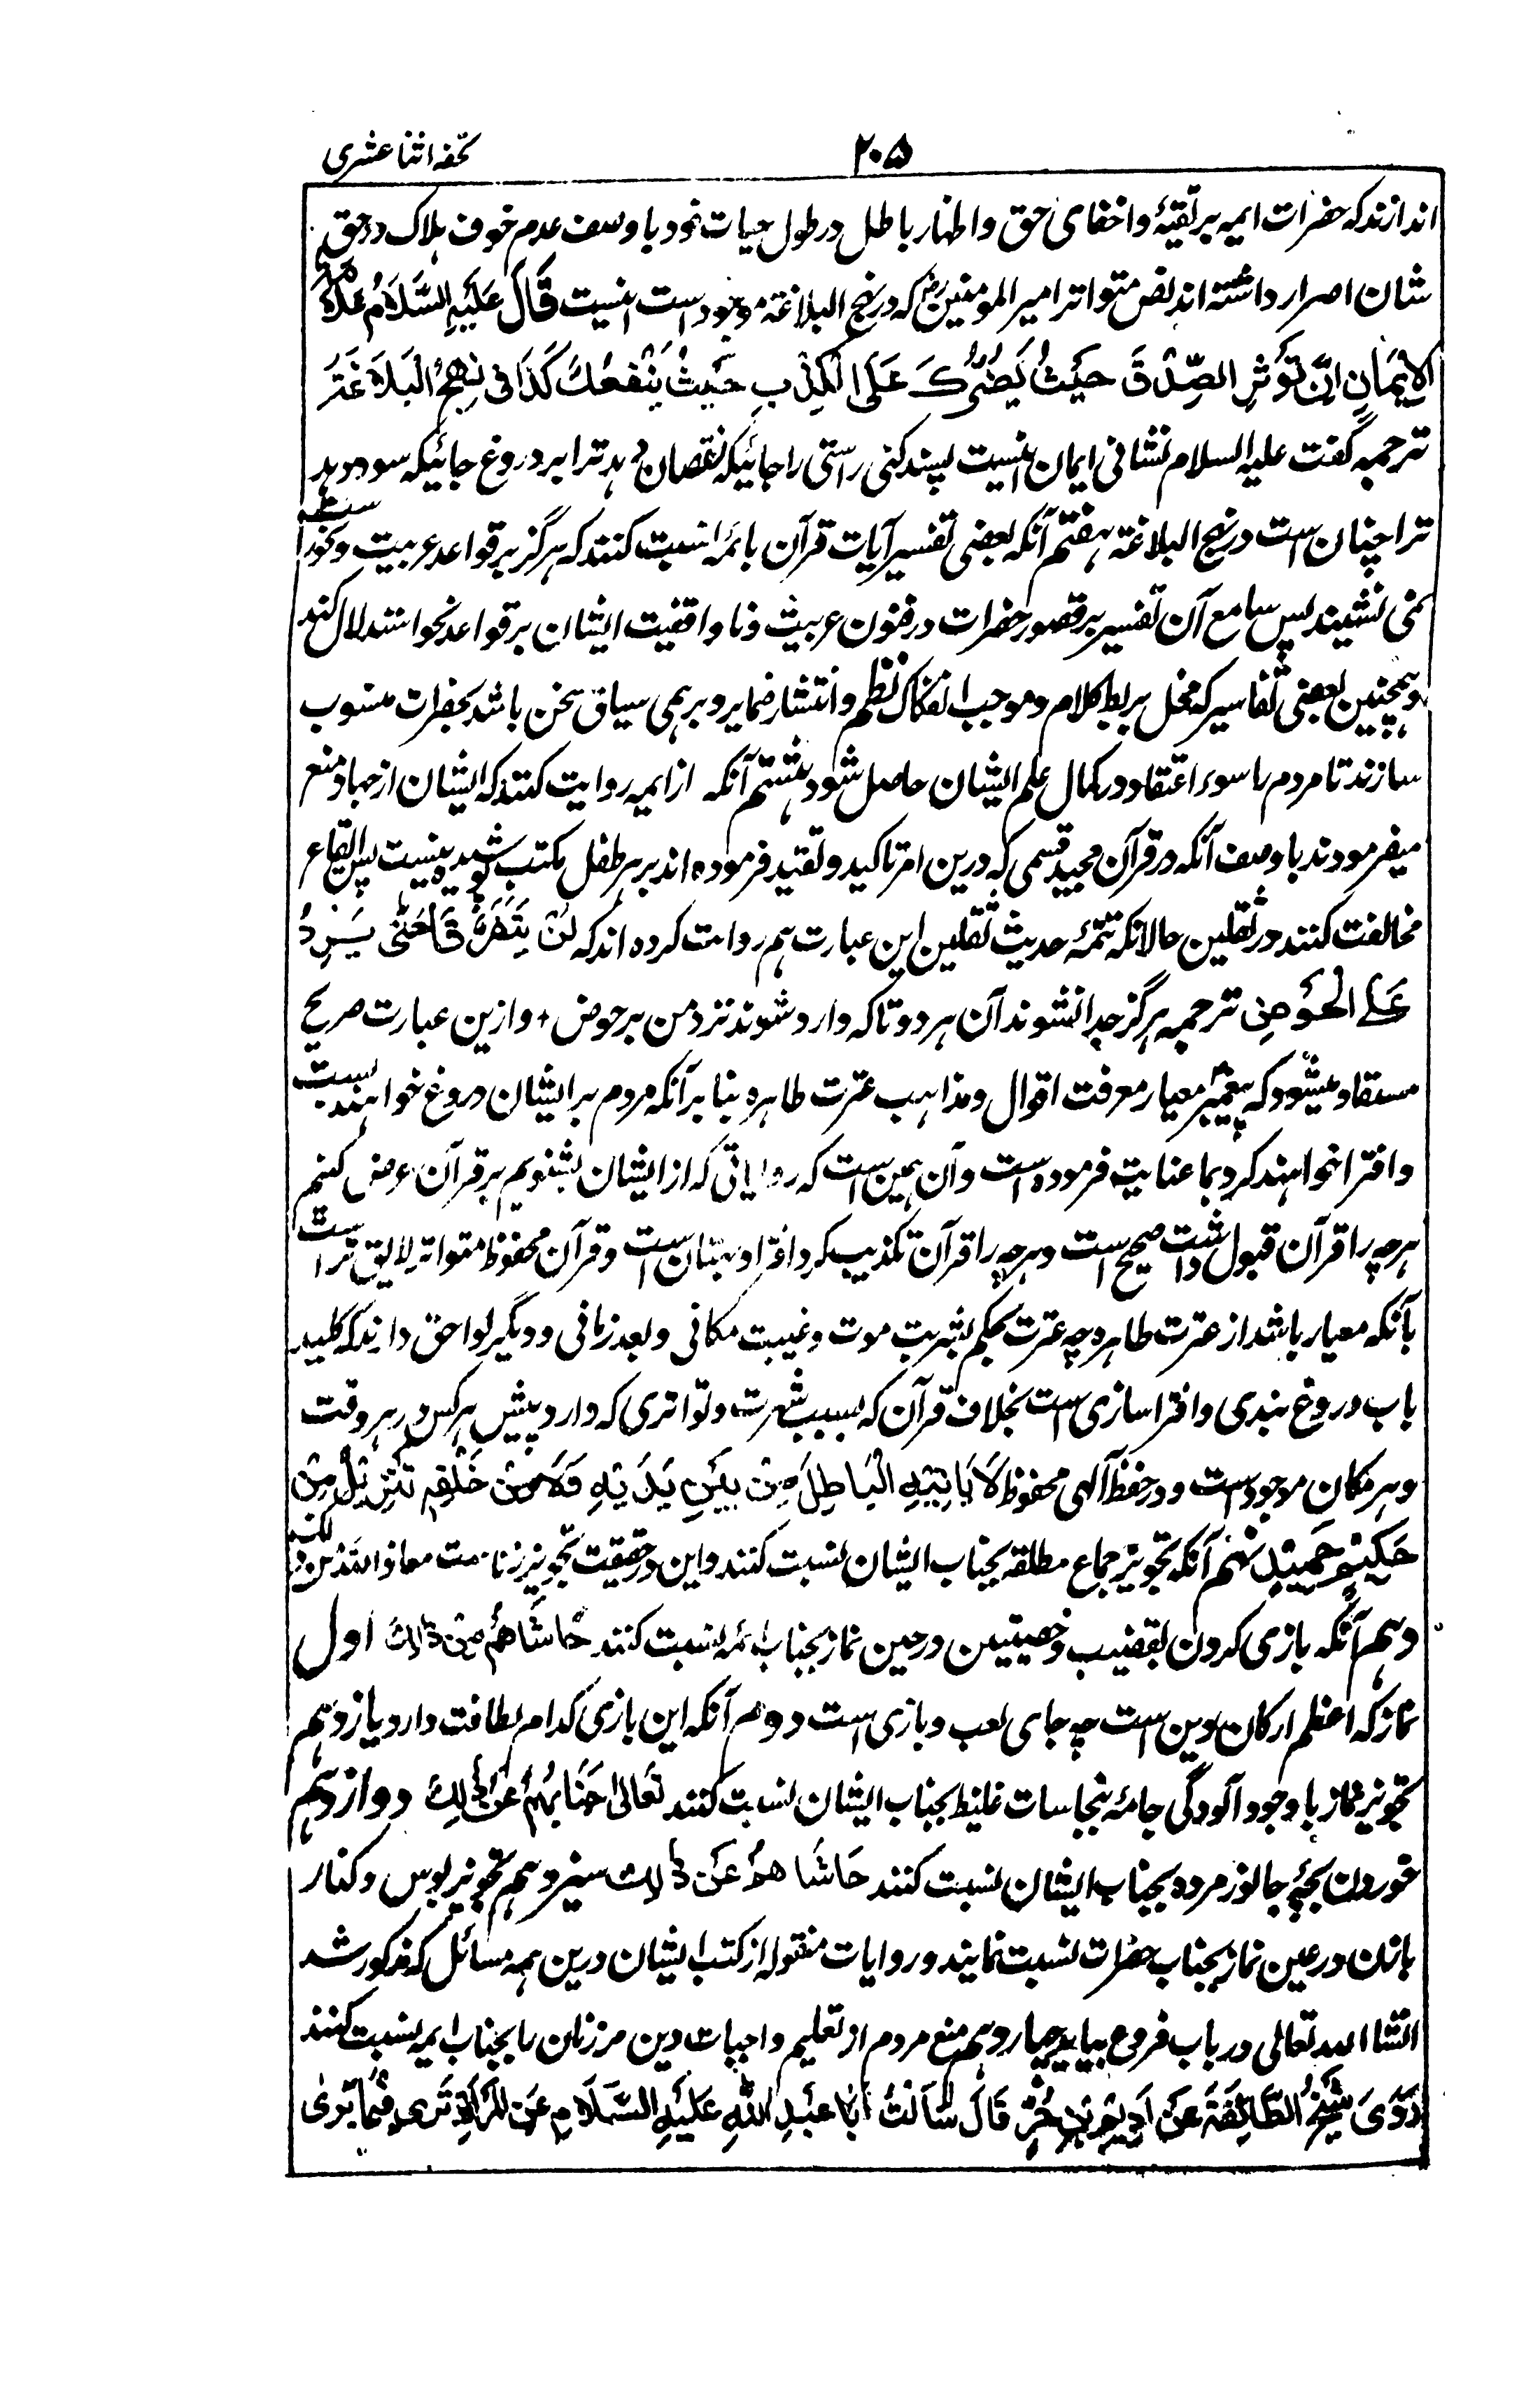 تحفه اثنا عشری
۲۰۵
اندازند که حضرات ایمه بر تقیهٔ و اخفای حق و اظهار باطل در طول حیات خود با وصف عدم خوف هلاک در حق
شان اصرار داشته اند نص متواتر امیر المومنین رض که در نهج البلاغة موجود است اینست قَالَ عَلَیْهِ السَّلَامُ عَلَامَةُ
الْاِیْمَانِ اِنَّ تُؤْثِرِ الصِّدْقَ حَیْثُ یَضُرُّكَ عَلَی الْکِذْبِ حَیْثُ یَنْفَعُكَ کَذَا فِی نَهْجِ الْبَلَاغَةِ
ترجمه گفت علیه السلام نشانی ایمان اینست پسند کنی راستی را جائیکه نقصان دهد ترا بر دروغ جائیکه سود دهد
ترا چنان است در نهج البلاغة هفتم آنکه بعضی تفسیر آیات قرآن بائمه نسبت کنند که هرگز بر قواعد عربیت و نحو راست
نمی نشیند پس سامع آن تفسیر بر قصور حضرات در فنون عربیت و نا واقفیت ایشان بر قواعد نحو استدلال کند
و همچنین بعضی تفاسیر که مخل بربط کلام و موجب انفکاک نظم و انتشار ضمایر و برهمی سیاق سخن باشد بحضرات منسوب
سازند تا مردم را سوء اعتقاد در کمال علم ایشان حاصل شود هشتم آنکه از ایمه روایت کنند که ایشان از جهاد منع
میفرمودند با وصف آنکه در قرآن مجید قسمی که درین امر تاکید و تقید فرموده اند بر هر طفل مکتب پوشیده نیست پس ایقاع
مخالفت کنند در ثقلین حالانکه تتمهٔ حدیث ثقلین این عبارت هم روایت کرده اند که لَنْ یَتَفَرَّقَا حَتّٰی یَرِدُ
عَلَی الْحَوْضِ ترجمه هرگز جدا نشوند آن هر دو تا که وارد شوند نزد من بر حوض + و ازین عبارت صریح
مستفاد میشود که پیغمبر معیار معرفت اقوال و مذاهب عترت طاهره بنا بر آنکه مردم بر ایشان دروغ خواهند بست
و افترا خواهند کرد بما عنایت فرموده است و آن همین است که روایاتی که از ایشان بشنویم بر قرآن عرض کنیم
هرچه را قرآن قبول داشت صحیح است و هرچه را قرآن تکذیب کرد افترا و بهتان است و قرآن محفوظ متواتر لایق تر است
بآنکه معیار باشد از عترت طاهره چه عترت بحکم بشریت موت و غیبت مکانی و بعد زمانی و دیگر لواحق دارند که کلید
باب دروغ بندی و افترا سازی است بخلاف قرآن که بسبب شهرت و تواتری که دارد پیش هر کس در هر وقت
و هر مکان موجود است و در حفظ آلهی محفوظ لَا یَاْتِیْهِ الْبَاطِلُ مِنْ بَیْنِ یَدَیْهِ وَلَا مِنْ خَلْفِهٖ تَنْزِیْلٌ مِنْ
حَکِیْمٍ حَمِیْدٍ نهم آنکه تجویز جماع مطلقه بجناب ایشان نسبت کنند و این در حقیقت تجویز زنا ست معاذ الله من ذلک
دهم آنکه بازی کردن بقضیب و خصیتین در حین نماز بجناب ائمه نسبت کنند حَاشَاهُمْ مِنْ ذٰلِكَ اول
نماز که اعظم ارکان دین است چه جای لعب و بازی است دوم آنکه این بازی کدام لطافت دارد یازدهم
تجویز نماز با وجود آلودگی جامه بنجاسات غلیظ بجناب ایشان نسبت کنند تَعَالٰی جَنَابُهُمْ عَنْ ذٰلِكَ دوازدهم
خوردن بچهٔ جانور مرده بجناب ایشان نسبت کنند حَاشَا هُمْ عَنْ ذٰلِكَ سیزدهم تجویز بوس و کنار
بازنان در عین نماز بجناب حضرات نسبت نمایند و روایات منقوله از کتب ایشان درین همه مسائل که مذکور شد
انشا الله تعالی در باب فروع بیاید چهاردهم منع مردم از تعلیم واجبات دین مر زنان را بجناب ایمه نسبت کنند
رَوَیٰ شَیْخُ الطَّائِفَةِ عَنْ اَدِیْمِ بْنِ حُرٍّ قَالَ سَاَلْتُ اَبَا عَبْدِ اللّٰهِ عَلَیْهِ السَّلَامِ عَنِ الْمَرْاَةِ تَرٰی فِیْمَا یَرٰی